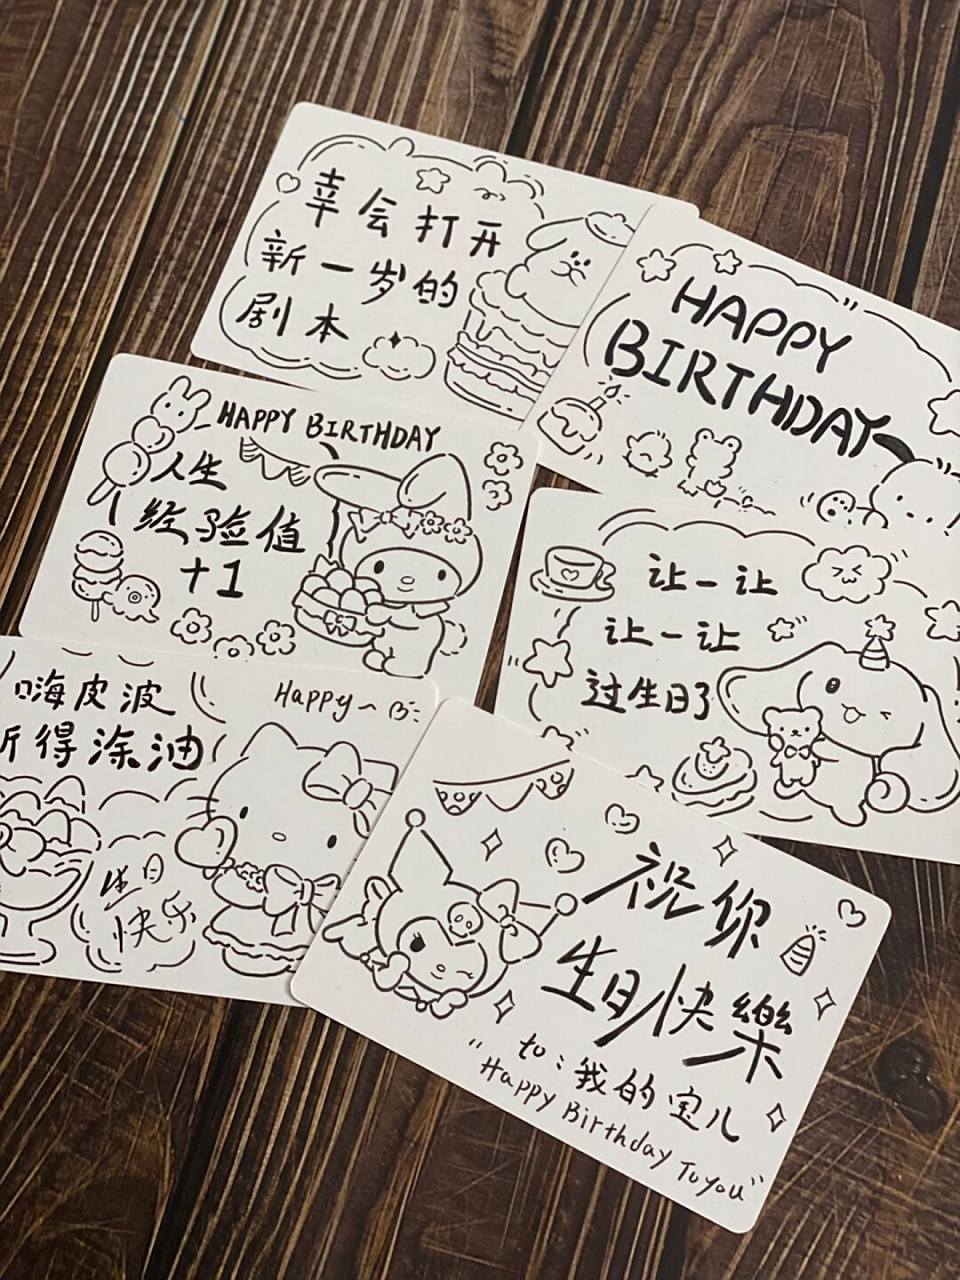 幸会打开
新一岁的
剧本
HAPPY
BIRTHDAY
HAPPY BIRTHDAY
人生
经验值
+1
让一让
让一让
过生日了
嗨皮波
斤得涂油
Happy~
生日
快乐
祝你
生日快樂
to:我的宝儿
"Happy Birthday To you"